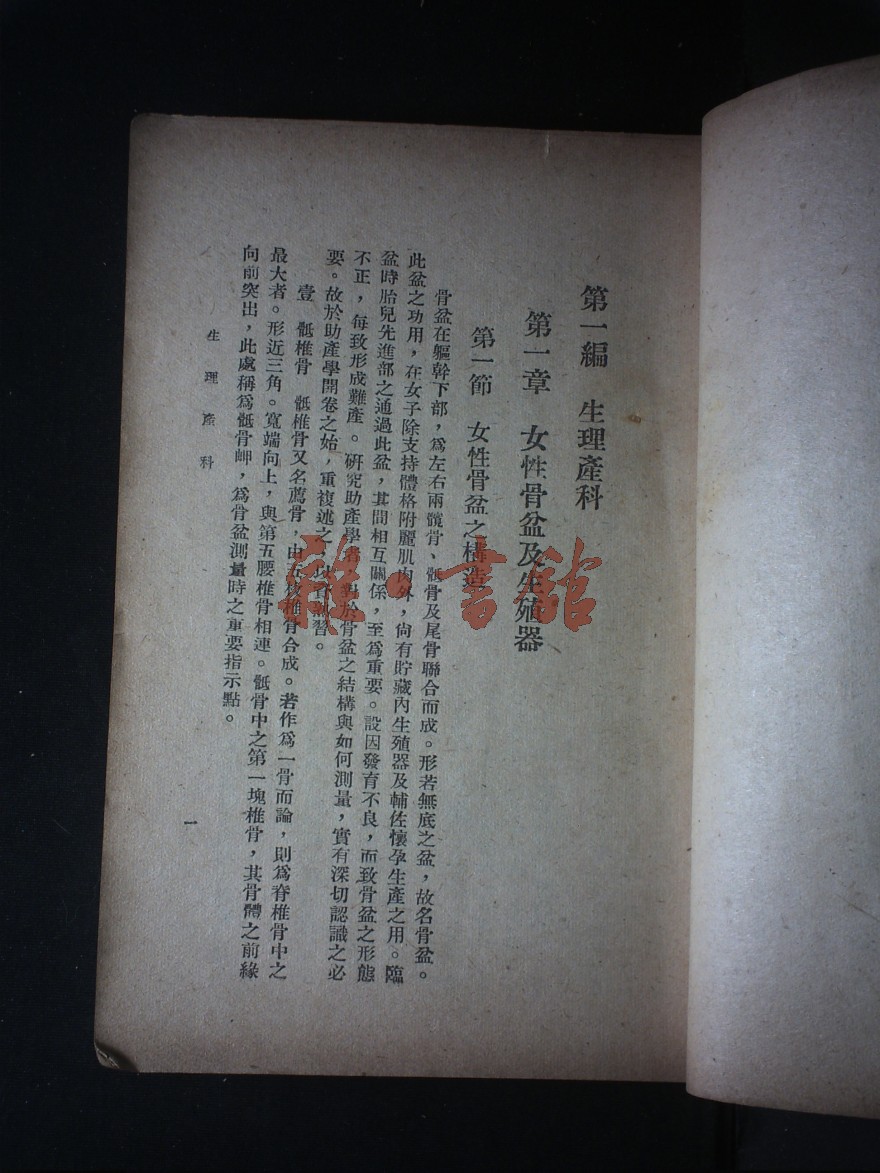 第一編　生理產科
第一章　女性骨盆及生殖器
第一節　女性骨盆之構造
骨盆在軀幹下部，爲左右兩髖骨、骶骨及尾骨聯合而成。形若無底之盆，故名骨盆。
此盆之功用，在女子除支持體格附麗肌肉外，尙有貯藏內生殖器及輔佐懷孕生產之用。臨
盆時胎兒先進部之通過此盆，其間相互關係，至爲重要。設因發育不良，而致骨盆之形態
不正，每致形成難產。研究助產學者，對於骨盆之結構與如何測量，實有深切認識之必
要。故於助產學開卷之始，重複述之，以資溫習。
壹　骶椎骨　骶椎骨又名薦骨，由五枚椎骨合成。若作爲一骨而論，則爲脊椎骨中之
最大者。形近三角。寬端向上，與第五腰椎骨相連。骶骨中之第一塊椎骨，其骨體之前緣
向前突出，此處稱爲骶骨岬，爲骨盆測量時之重要指示點。
生理產科
一
雜·書館